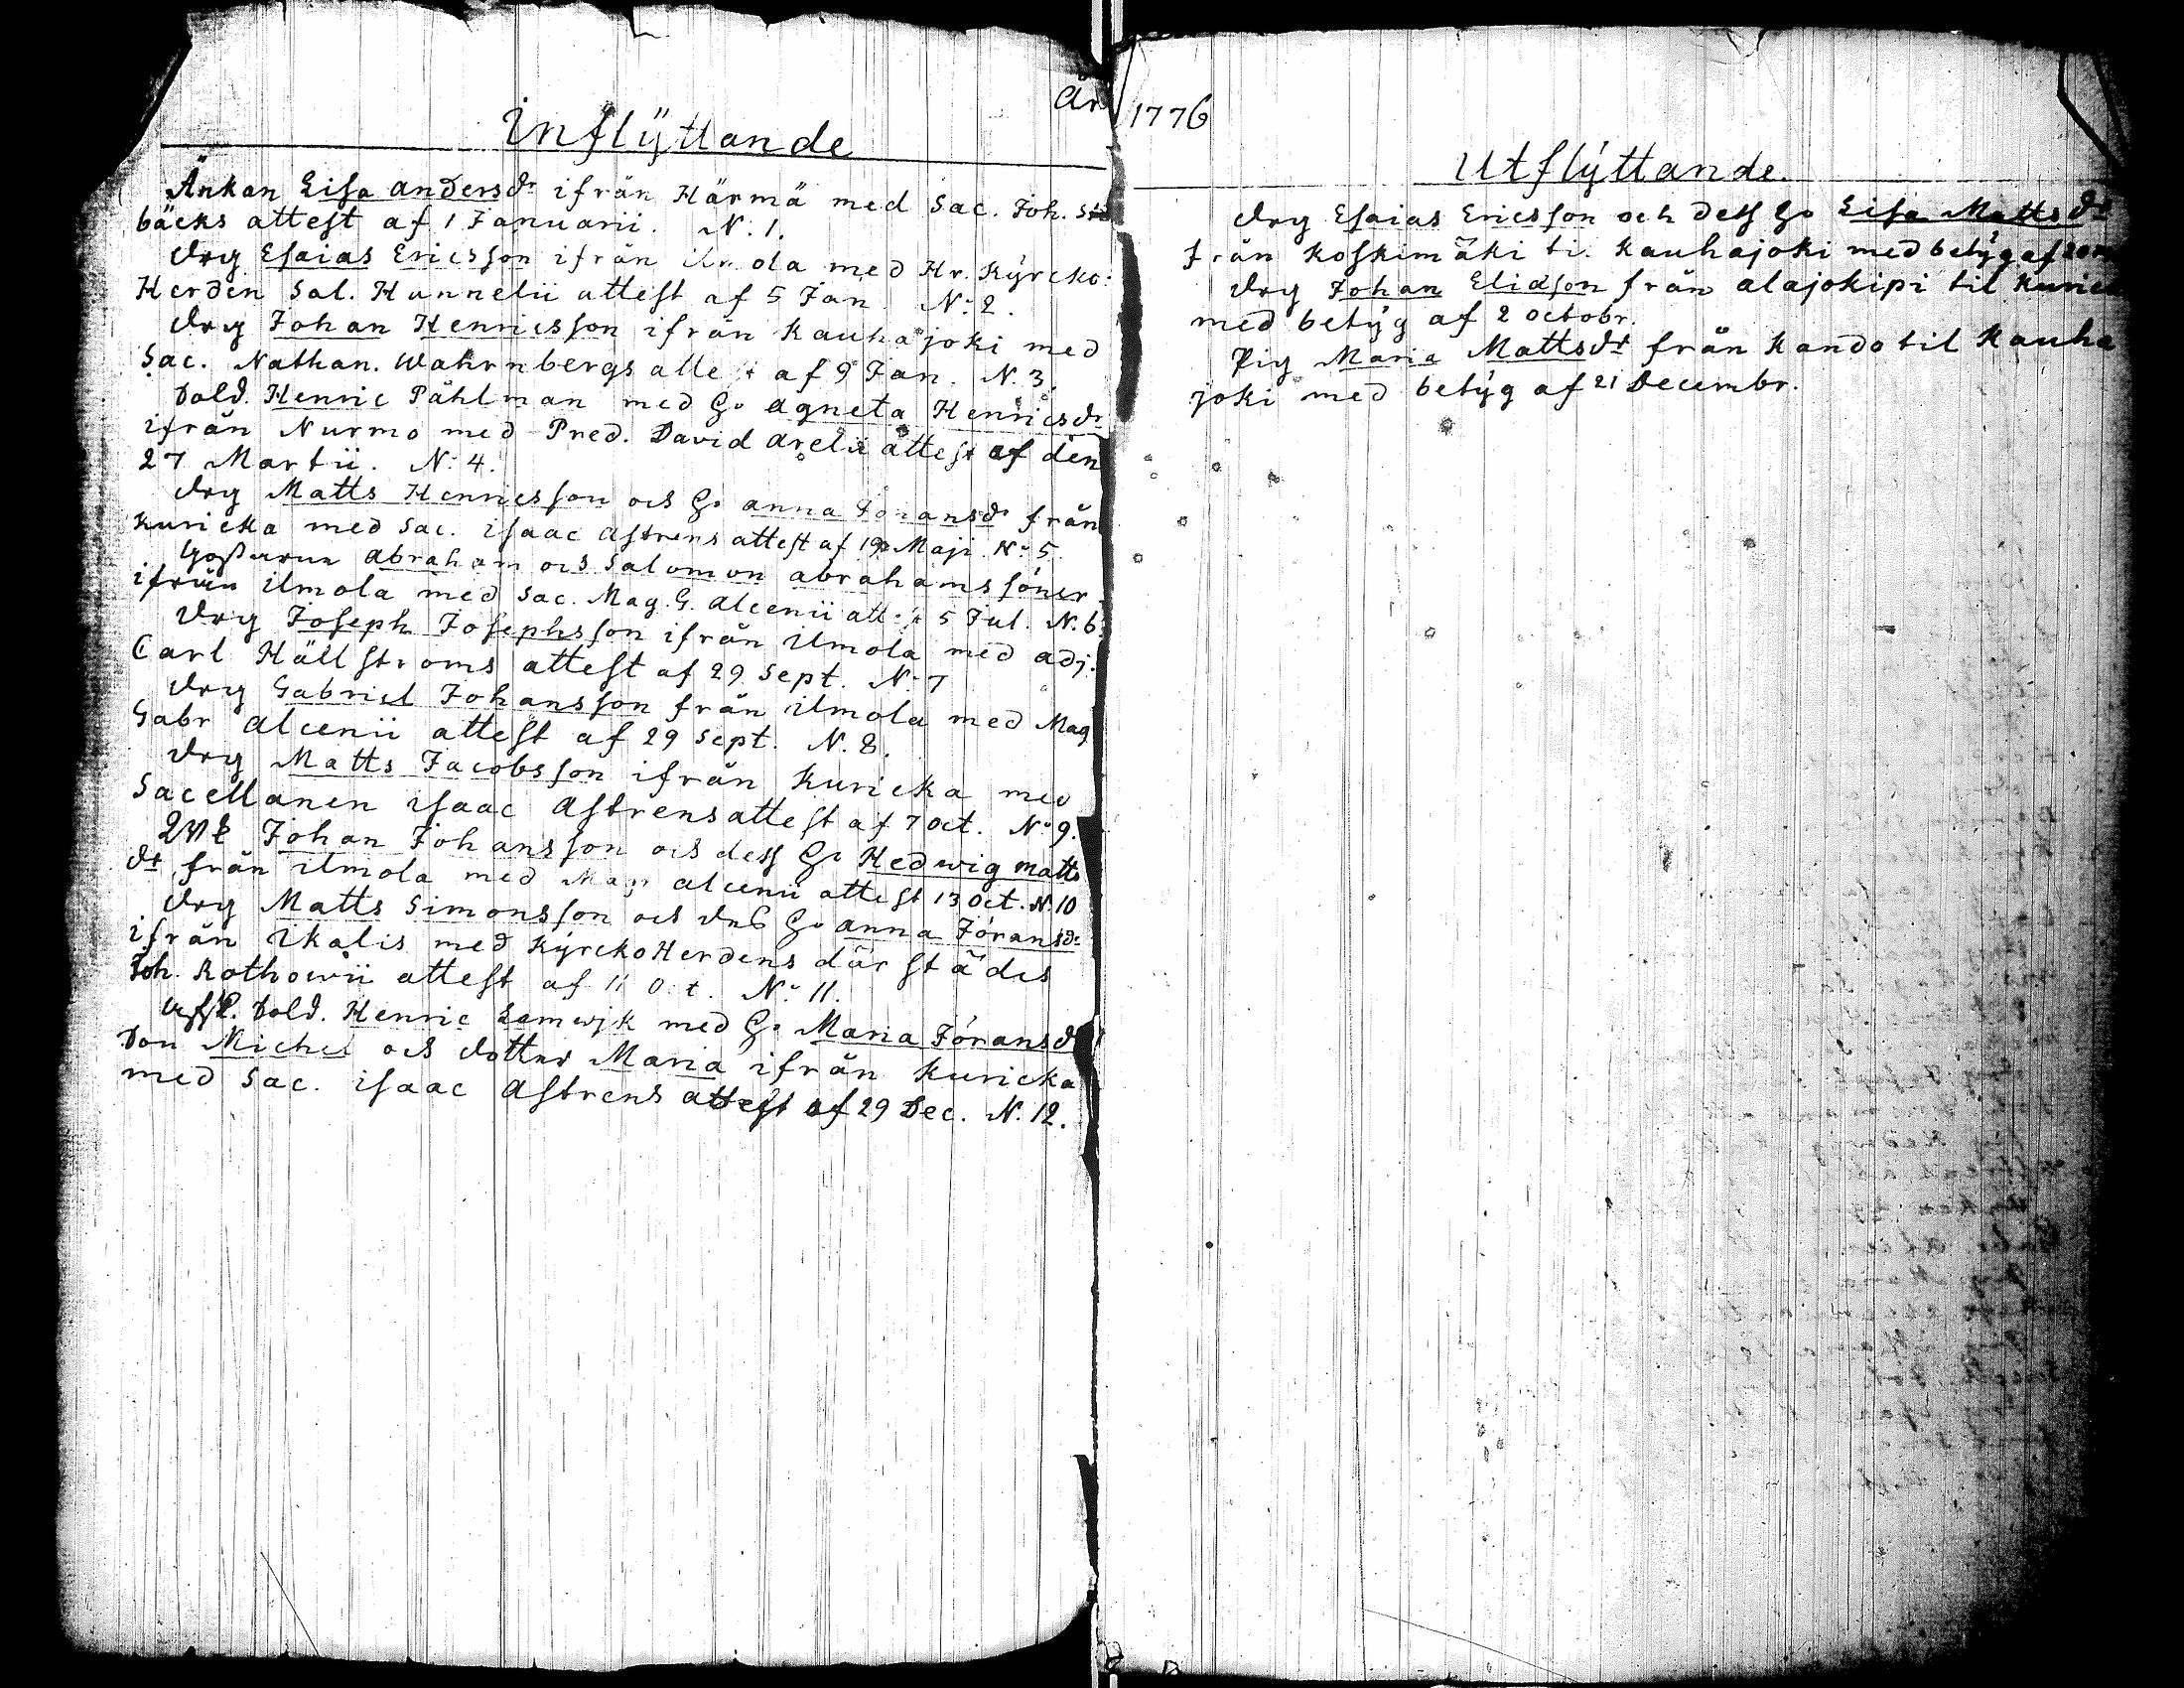 År 1776
Inflyttande
Änkan Lisa Andersdr ifrån Härmä med Sac. Joh.
bäcks attest af 1 Januarii. N:1.
Drg Esaias Ericsson ifrån Ilmola med Hr. Kyrcko:
Herden Sal. Hannelii attest af 5 Jan N:2.
Drg Johan Henricsson ifrån Kauhajoki med
Sac. Nathan. Wahrnbergs attest af 9 Jan. N.3.
Sold. Henric Påhlman med h: Agneta Henricsdr
ifrån Nurmo med Pred. David Arelii attest af den
27 Martii. N:4.
Drg Matts Henricsson och h: Anna Johansdr från
Kuricka med Sac. Isaac Astrens attest af 19 Maji. N:5.
Gossarne Abraham och Salomon Abrahamssöner
ifrån Ilmola med Sac. Mag. G. Alcenii att: 5 Jul. N.6
Drg Joseph Josephsson ifrån Ilmola med Adj.
Carl Hällströms attest af 29 Sept. N:7
Drg Gabriel Johansson från Ilmola med Mag
Gabr Alcenii attest af 29 Sept. N.8.
Drg Matts Jacobsson ifrån Kuricka med
Sacellanen Isaac Astrens attest af 7 Oct. N:9.
Johan Johansson och dess h: Hedwig Matts
dr från Ilmola med Mag Alcenii attest 13 Oct. N.10
Drg Matts Simonsson och dess h: Anna Jöransdr
ifrån Ikalis med KyrckoHerdens därstädes
Joh. Rothowii attest af 11 Oct. N:11.
Afsk. Sold. Henric Lemwjk med h: Maria Jöransdr
Son Michel och dotter Maria ifrån Kuricka
med Sac. Isaac Astrens attest af 29 Dec. N.12.
Utflyttande.
Drg Esaias Ericsson och dess h: Lisa Mattsdr
från Koskimäki til Kauhajoki med betyg af 20
Drg Johan Eliasson från Alajokipi til Kurick
med betyg af 2 Octobr.
Pig Maria Mattsdr från Kando til Kauha
joki med betyg af 21 Decembr.